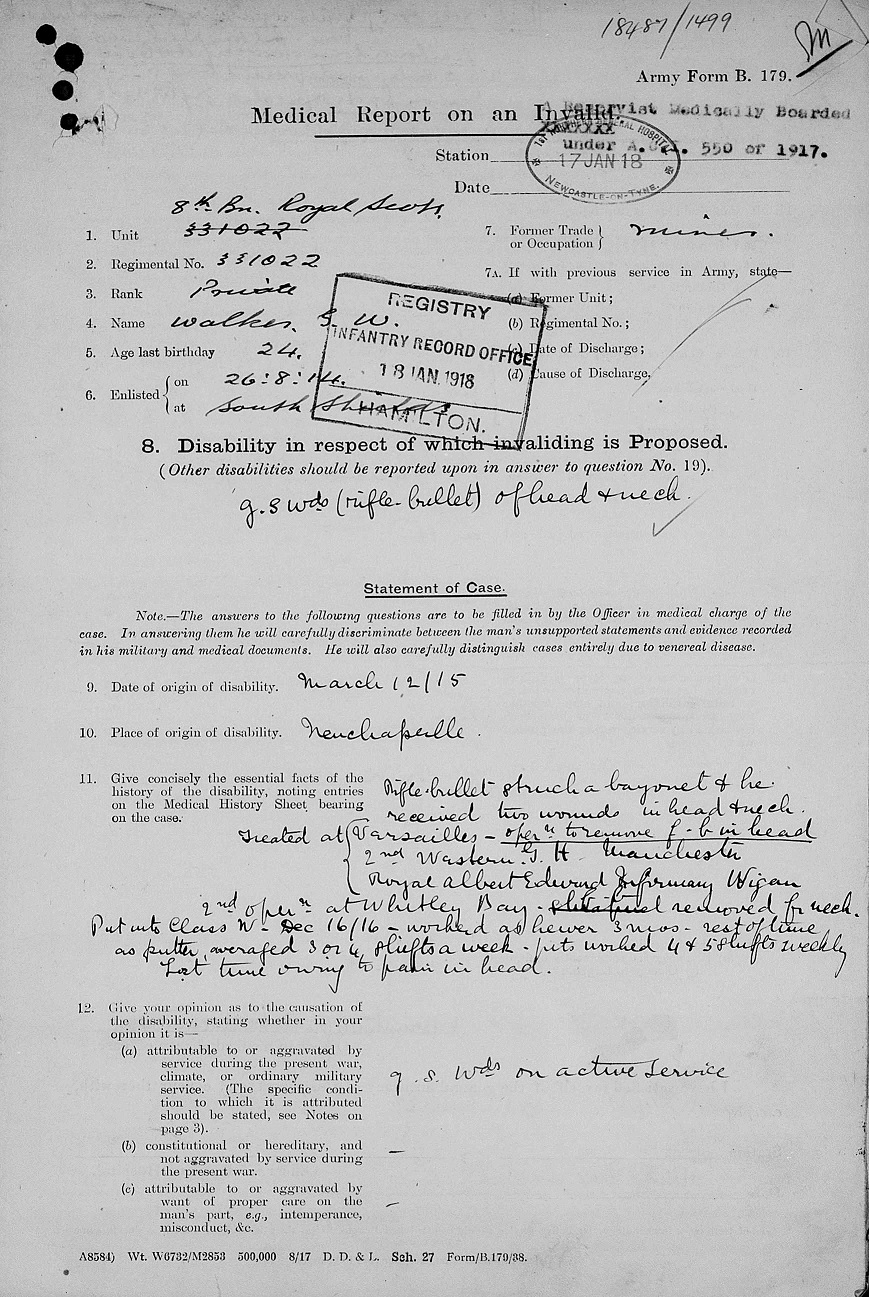 18487/1499
M
Army Form B. 179.
Medical Report on an Invalid.
A Reservist Medically Boarded
XXXXXXX
under A.C.I. 550 of 1917.
Station
1ST NORTHERN GENERAL HOSPITAL
17 JAN 18
NEWCASTLE-ON-TYNE.
Date
8th Bn. Royal Scots.
1. Unit 331022
2. Regimental No. 331022
3. Rank Private
4. Name Walker. G. W.
5. Age last birthday 24.
6. Enlisted { on 26:8:14.
at South Shields
7. Former Trade
or Occupation } Miner.
7A. If with previous service in Army, state—
(a) Former Unit;
(b) Regimental No.;
(c) Date of Discharge;
(d) Cause of Discharge.
REGISTRY
INFANTRY RECORD OFFICE
18 JAN. 1918
HAMILTON.
8. Disability in respect of which invaliding is Proposed.
(Other disabilities should be reported upon in answer to question No. 19).
g. s wds (rifle-bullet) of head & neck.
Statement of Case.
Note.—The answers to the following questions are to be filled in by the Officer in medical charge of the
case. In answering them he will carefully discriminate between the man's unsupported statements and evidence recorded
in his military and medical documents. He will also carefully distinguish cases entirely due to venereal disease.
9. Date of origin of disability. March 12/15
10. Place of origin of disability. Neuchapelle.
11. Give concisely the essential facts of the
history of the disability, noting entries
on the Medical History Sheet bearing
on the case.
Rifle-bullet struck a bayonet & he
received two wounds in head & neck.
Treated at { Versailles – opern to remove f-b in head
2nd Western G. H. Manchester
Royal Albert Edward Infirmary Wigan
2nd opern at Whitley Bay - removed fr neck.
Put into Class W – Dec 16/16 – worked as hewer 3 mos - rest of time
as putter, averaged 3 or 4 shifts a week - pits worked 4 & 5 shifts weekly
Lost time owing to pain in head.
12. Give your opinion as to the causation of
the disability, stating whether in your
opinion it is—
(a) attributable to or aggravated by
service during the present war,
climate, or ordinary military
service. (The specific condi-
tion to which it is attributed
should be stated, see Notes on
page 3).
g. s. wds on active service
(b) constitutional or hereditary, and
not aggravated by service during
the present war.
—
(c) attributable to or aggravated by
want of proper care on the
man's part, e.g., intemperance,
misconduct, &c.
—
A8584) Wt. W6732/M2853 500,000 8/17 D. D. & L. Sch. 27 Form/B.179/38.